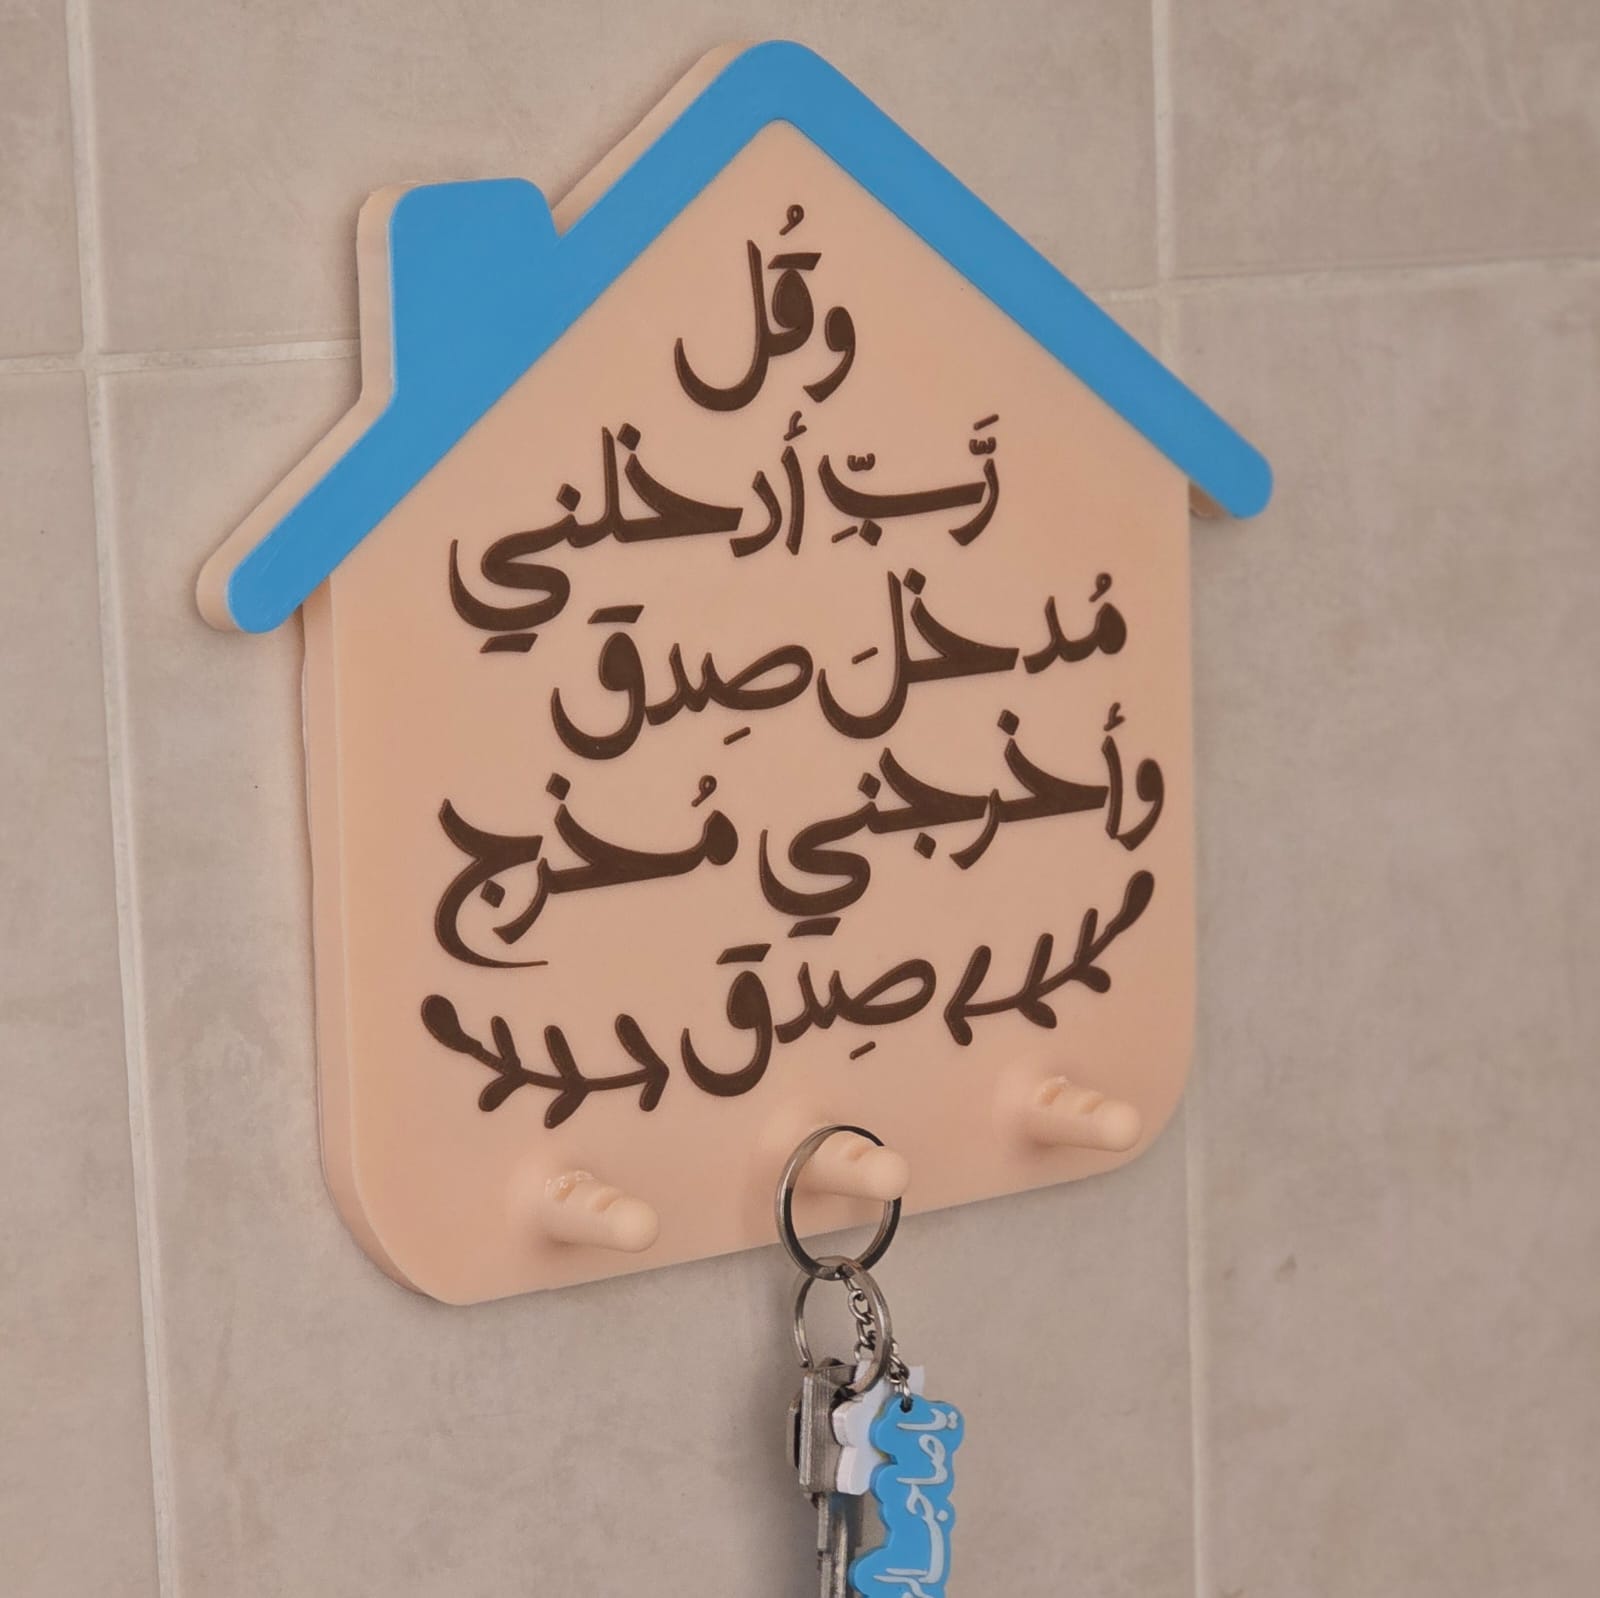 وقُل
رَّبِّ أدخلني
مُدخلَ صِدق
وأخرجني مُخرج
صِدق